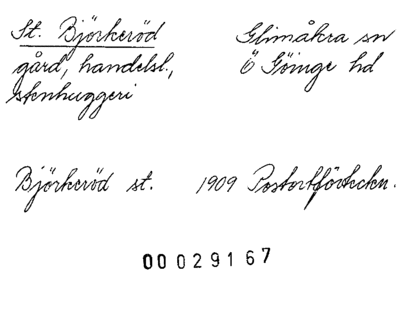 St. Björkeröd
Glimåkra sn
gård, handelsl.,
Ö Göinge hd
stenhuggeri
Björkeröd st. 1909 Postortförteckn.
00029167